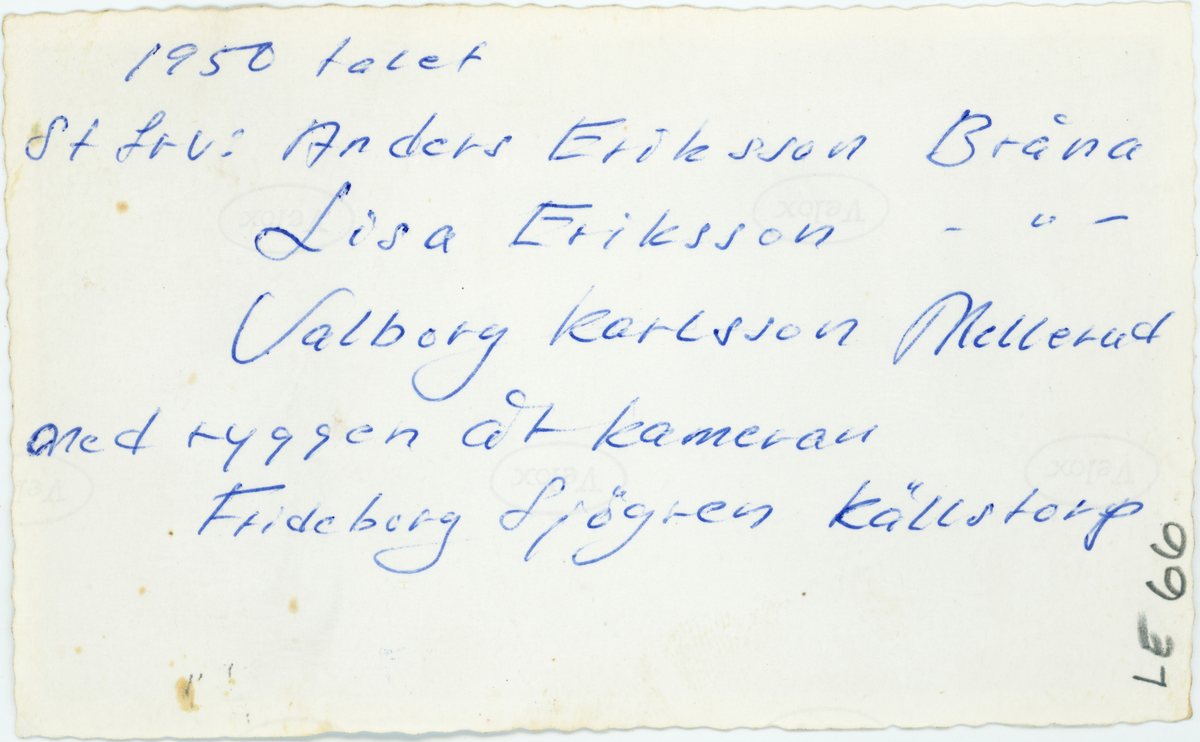 1950 talet
St frv: Anders Eriksson Bråna
Lisa Eriksson - " -
Valborg Karlsson Mellerud
med ryggen åt kameran
Frideborg Sjögren Källstorp
LE 66
Velox
Velox
Velox
Velox
Velox